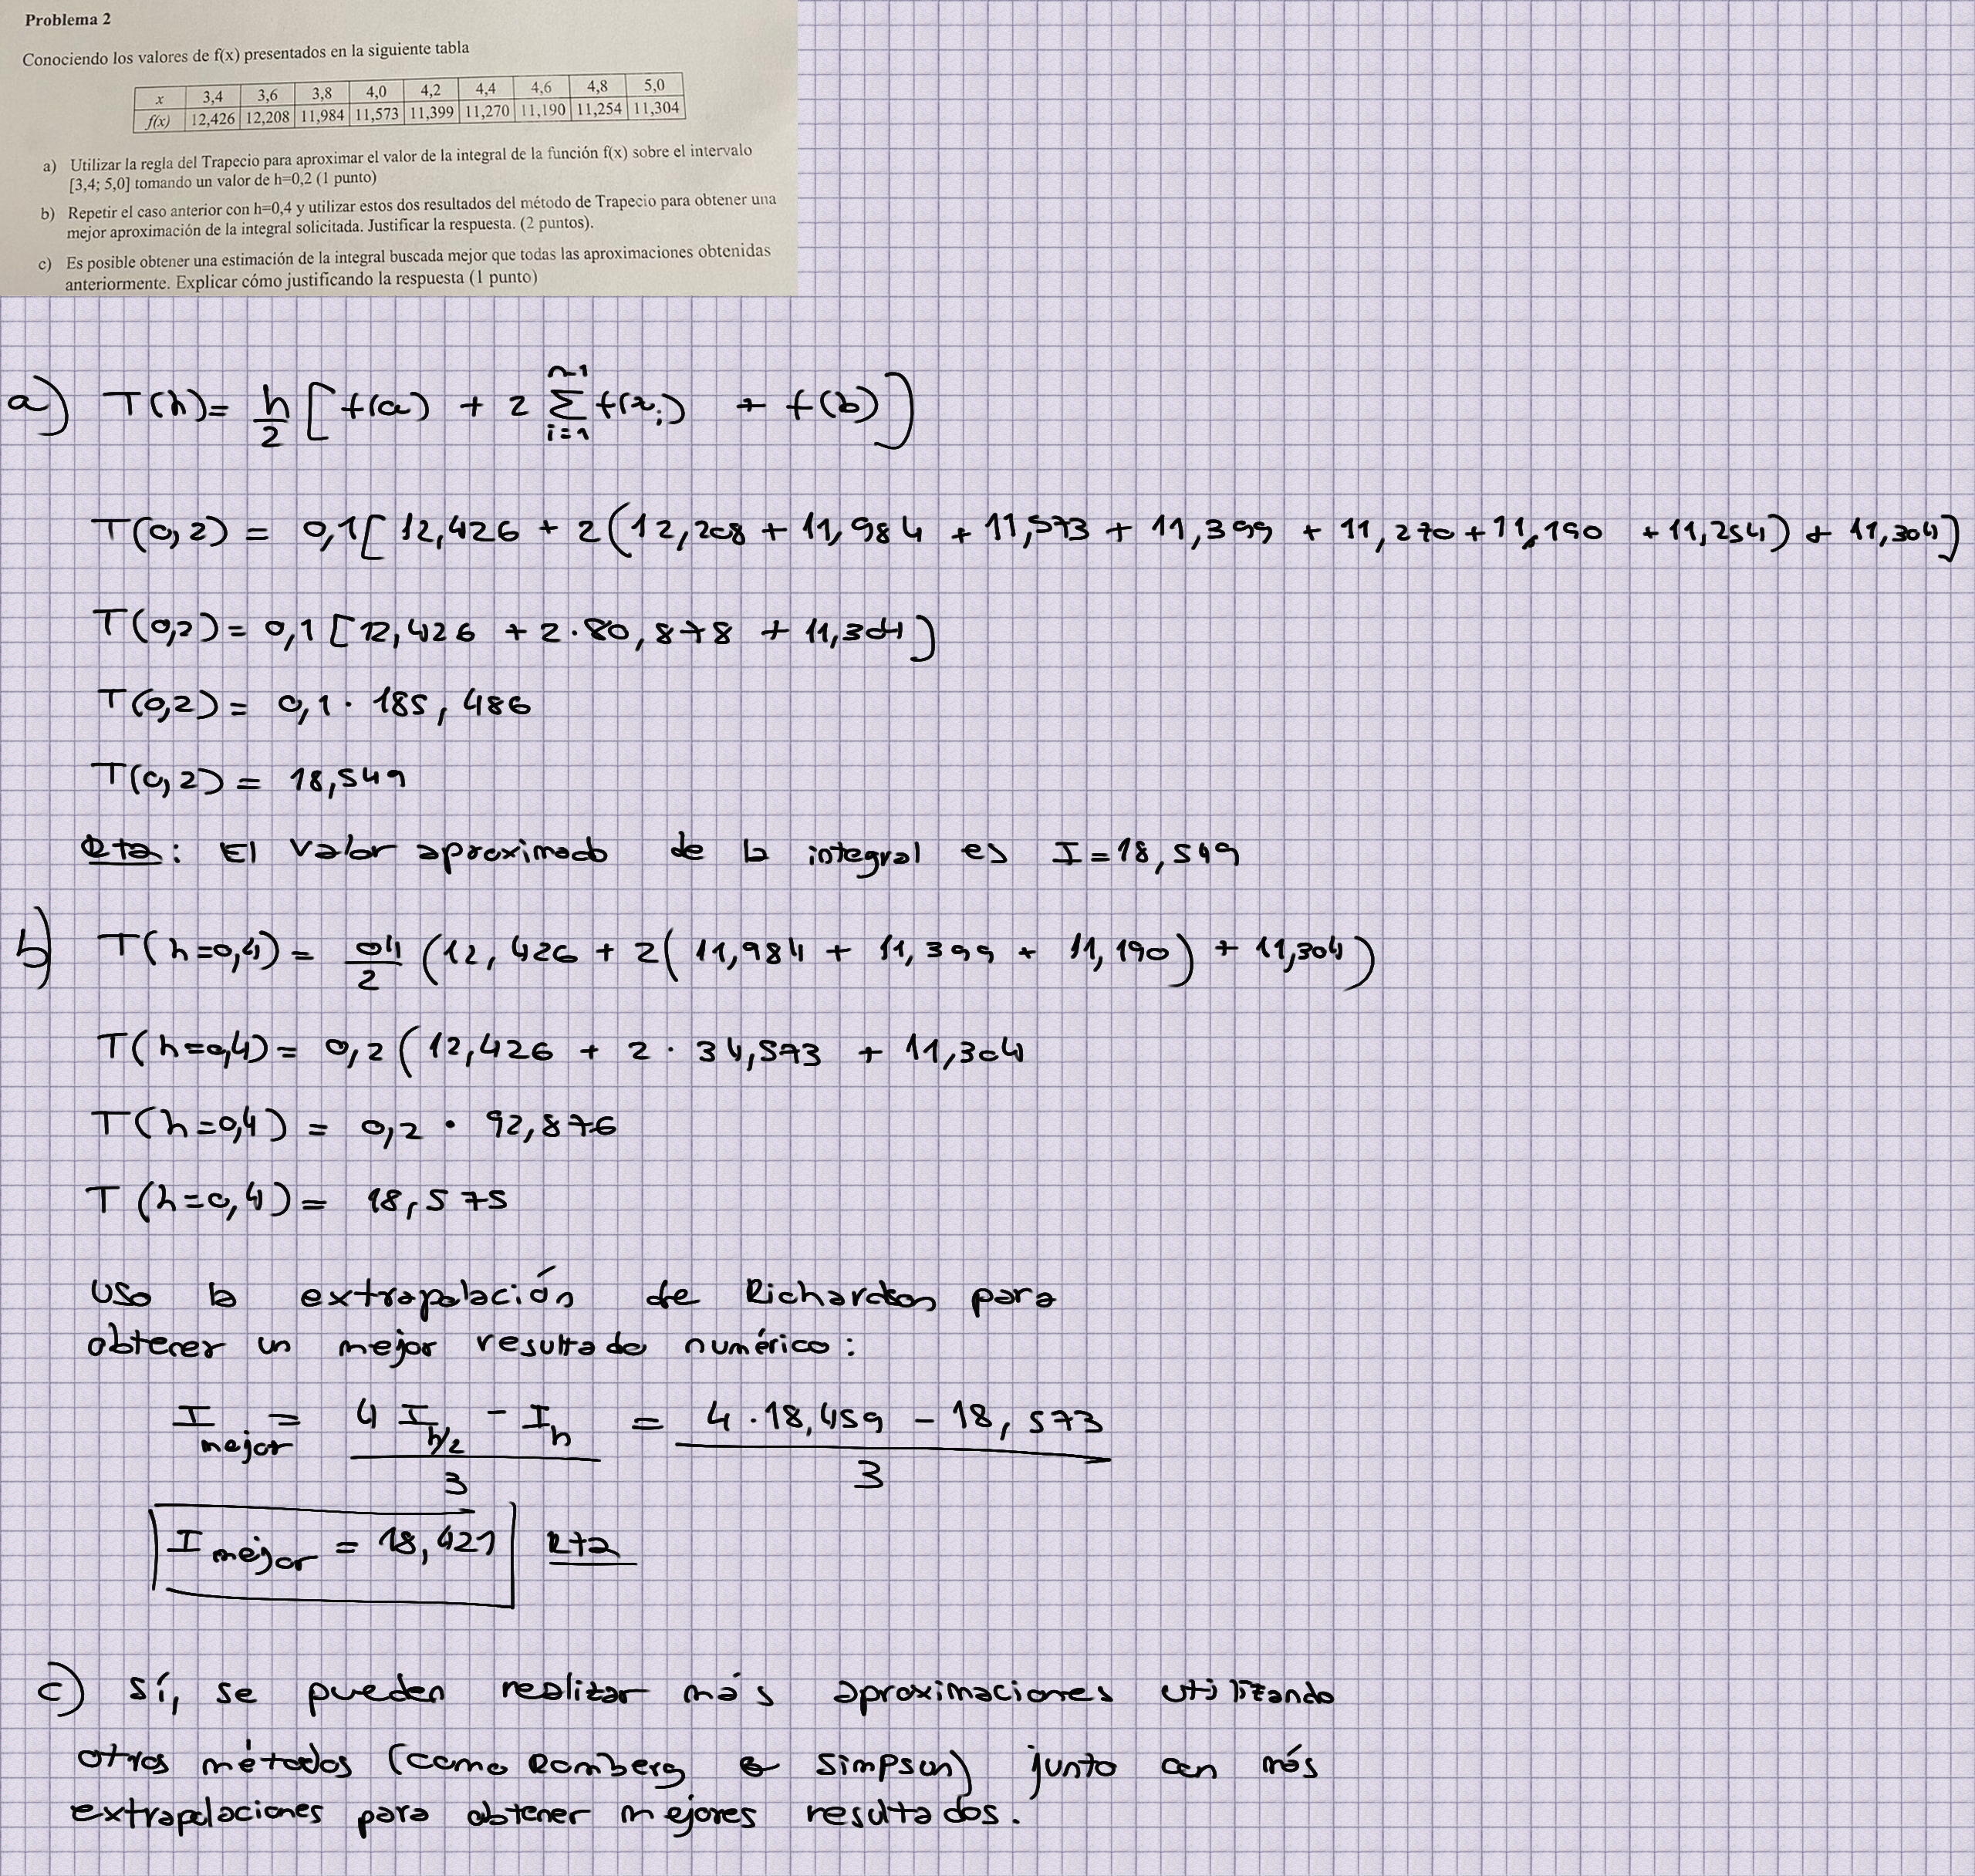 Problema 2
Conociendo los valores de f(x) presentados en la siguiente tabla
x 3,4 3,6 3,8 4,0 4,2 4,4 4,6 4,8 5,0
f(x) 12,426 12,208 11,984 11,573 11,399 11,270 11,190 11,254 11,304
a) Utilizar la regla del Trapecio para aproximar el valor de la integral de la función f(x) sobre el intervalo
[3,4; 5,0] tomando un valor de h=0,2 (1 punto)
b) Repetir el caso anterior con h=0,4 y utilizar estos dos resultados del método de Trapecio para obtener una
mejor aproximación de la integral solicitada. Justificar la respuesta. (2 puntos).
c) Es posible obtener una estimación de la integral buscada mejor que todas las aproximaciones obtenidas
anteriormente. Explicar cómo justificando la respuesta (1 punto)
a) T(h)= h/2 [f(a) + 2 Σ_{i=1}^{n-1} f(x_i) + f(b)]
T(0,2) = 0,1[12,426 + 2(12,208 + 11,984 + 11,573 + 11,399 + 11,270 + 11,190 + 11,254) + 11,304]
T(0,2) = 0,1 [12,426 + 2·80,878 + 11,304]
T(0,2) = 0,1 · 185,486
T(0,2) = 18,549
Rta: El valor aproximado de la integral es I = 18,549
b) T(h=0,4) = 0,4/2 (12,426 + 2(11,984 + 11,399 + 11,190) + 11,304)
T(h=0,4) = 0,2 (12,426 + 2 · 34,573 + 11,304
T(h=0,4) = 0,2 · 92,876
T(h=0,4) = 18,575
Uso la extrapolación de Richardson para
obtener un mejor resultado numérico:
I_mejor = (4 I_{h/2} - I_h)/3 = (4 · 18,459 - 18,573)/3
I_mejor = 18,421 Rta
c) Sí, se pueden realizar más aproximaciones utilizando
otros métodos (como Romberg o Simpson) junto con más
extrapolaciones para obtener mejores resultados.